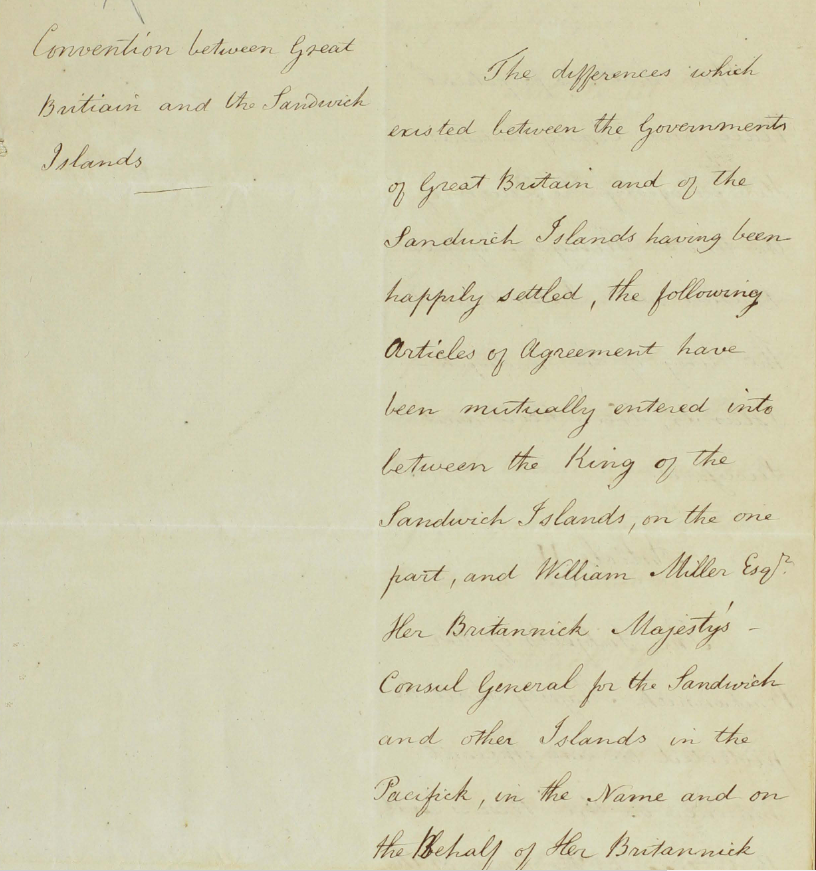 Convention between Great
Britiain and the Sandwich
Islands
The differences which
existed between the Governments
of Great Britain and of the
Sandwich Islands having been
happily settled, the following
Articles of Agreement have
been mutually entered into
between the King of the
Sandwich Islands, on the one
part, and William Miller Esqr.
Her Britannick Majesty's -
Consul General for the Sandwich
and other Islands in the
Pacifick, in the Name and on
the Behalf of Her Britannick